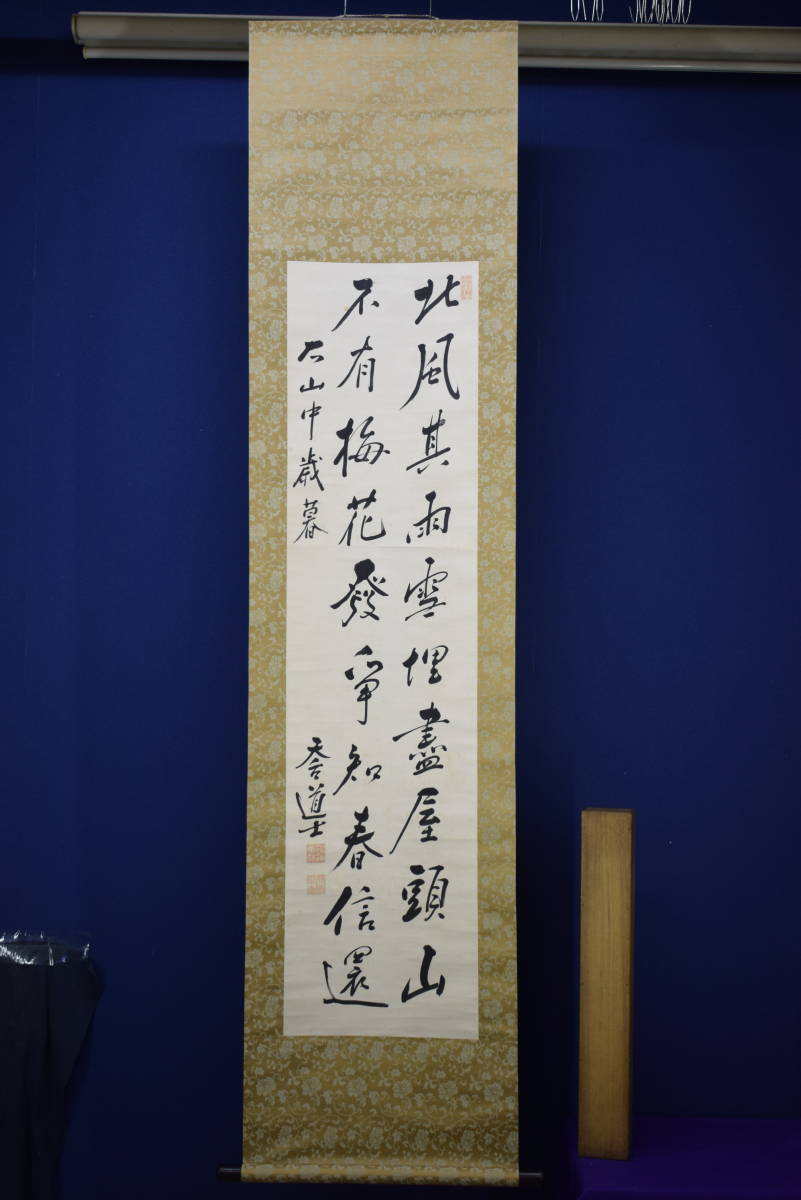 北風其雨雪埋盡屋頭山
不有梅花發爭知春信還
右山中歳暮
呑道士